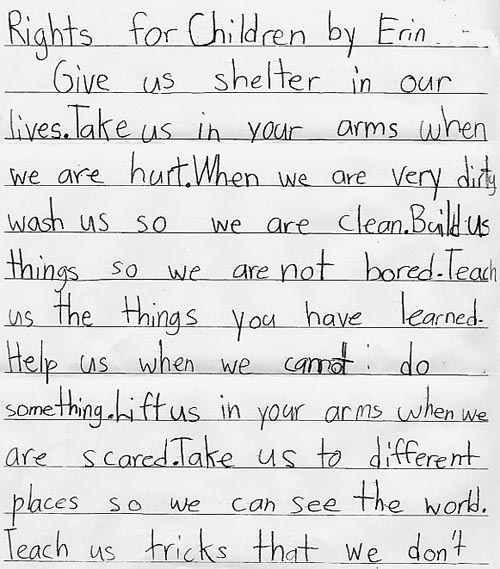 Rights for Children by Erin
Give us shelter in our
lives.Take us in your arms when
we are hurt.When we are very dirty
wash us so we are clean.Build us
things so we are not bored.Teach
us the things you have learned.
Help us when we cannot do
something.Lift us in your arms when we
are scared.Take us to different
places so we can see the world.
Teach us tricks that we don't